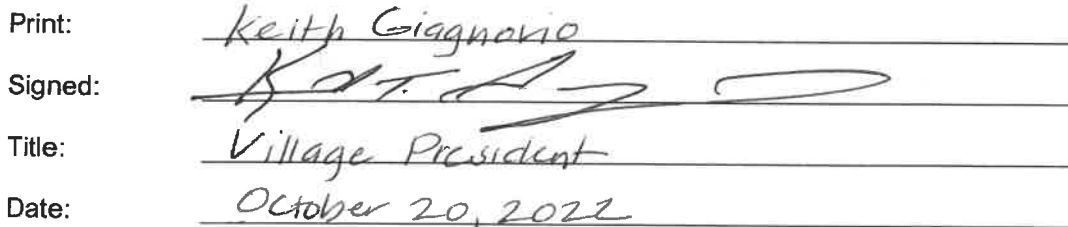 Print: Keith Giagnorio
Signed:
Title: Village President
Date: October 20, 2022